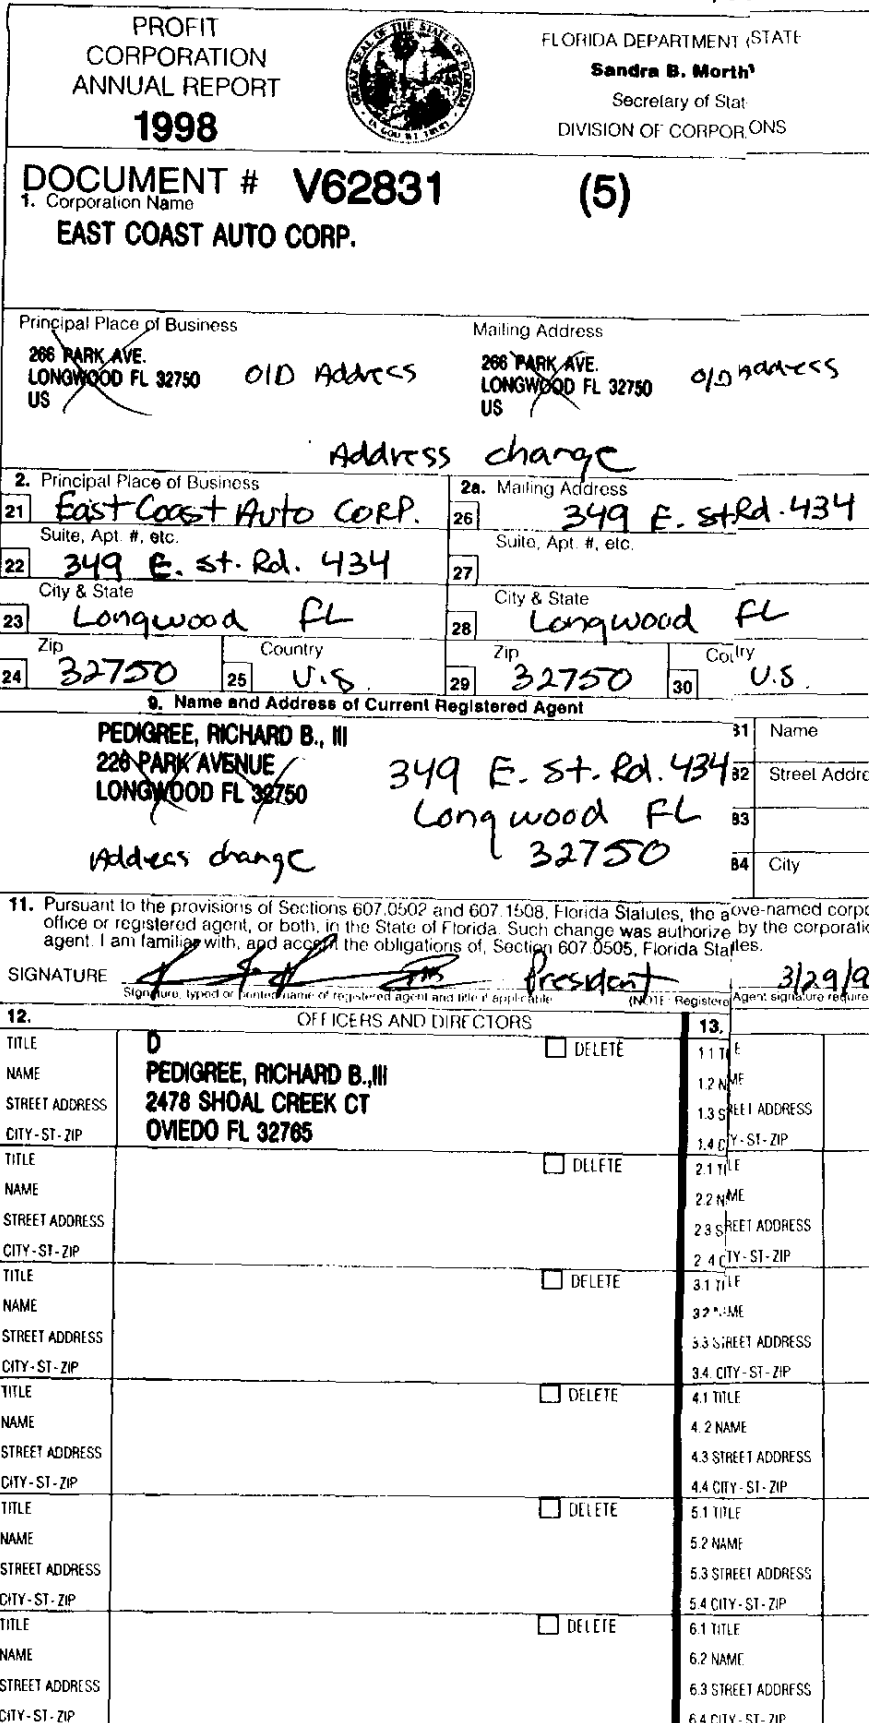 PROFIT
CORPORATION
ANNUAL REPORT
1998
GREAT SEAL OF THE STATE OF FLORIDA
IN GOD WE TRUST
FLORIDA DEPARTMENT STATE
Sandra B. Morth
Secretary of Stat
DIVISION OF CORPORONS
DOCUMENT # V62831 (5)
1. Corporation Name
EAST COAST AUTO CORP.
Principal Place of Business
266 PARK AVE.
LONGWOOD FL 32750
US
Old Address
Mailing Address
266 PARK AVE.
LONGWOOD FL 32750
US
Old Address
Address change
2. Principal Place of Business
21 East Coast Auto CORP.
Suite, Apt. #, etc.
22 349 E. St. Rd. 434
City & State
23 Longwood FL
Zip
24 32750
Country
25 U.S.
2a. Mailing Address
26 349 E. St Rd. 434
Suite, Apt. #, etc.
27
City & State
28 Longwood FL
Zip
29 32750
Coutry
30 U.S.
9. Name and Address of Current Registered Agent
PEDIGREE, RICHARD B., III
226 PARK AVENUE
LONGWOOD FL 32750
Address change
349 E. St. Rd. 434
Longwood FL
32750
31 Name
32 Street Addre
33
34 City
11. Pursuant to the provisions of Sections 607.0502 and 607.1508, Florida Statutes, the aove-named corpo
office or registered agent, or both, in the State of Florida. Such change was authorize by the corporatio
agent. I am familiar with, and accept the obligations of, Section 607.0505, Florida Statles.
SIGNATURE President 3/29/9
Signature, typed or printed name of registered agent and title if applicable (NOTE: Registere Agent signature require
12. OFFICERS AND DIRECTORS 13.
TITLE D DELETE
NAME PEDIGREE, RICHARD B.,III
STREET ADDRESS 2478 SHOAL CREEK CT
CITY-ST-ZIP OVIEDO FL 32765
1.1 TITLE
1.2 NAME
1.3 STREET ADDRESS
1.4 CITY-ST-ZIP
TITLE DELETE
NAME
STREET ADDRESS
CITY-ST-ZIP
2.1 TITLE
2.2 NAME
2.3 STREET ADDRESS
2.4 CITY-ST-ZIP
TITLE DELETE
NAME
STREET ADDRESS
CITY-ST-ZIP
3.1 TITLE
3.2 NAME
3.3 STREET ADDRESS
3.4. CITY-ST-ZIP
TITLE DELETE
NAME
STREET ADDRESS
CITY-ST-ZIP
4.1 TITLE
4.2 NAME
4.3 STREET ADDRESS
4.4 CITY-ST-ZIP
TITLE DELETE
NAME
STREET ADDRESS
CITY-ST-ZIP
5.1 TITLE
5.2 NAME
5.3 STREET ADDRESS
5.4 CITY-ST-ZIP
TITLE DELETE
NAME
STREET ADDRESS
CITY-ST-ZIP
6.1 TITLE
6.2 NAME
6.3 STREET ADDRESS
6.4 CITY-ST-ZIP